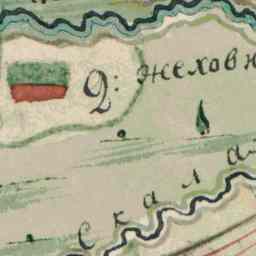 Д: жехов
скала